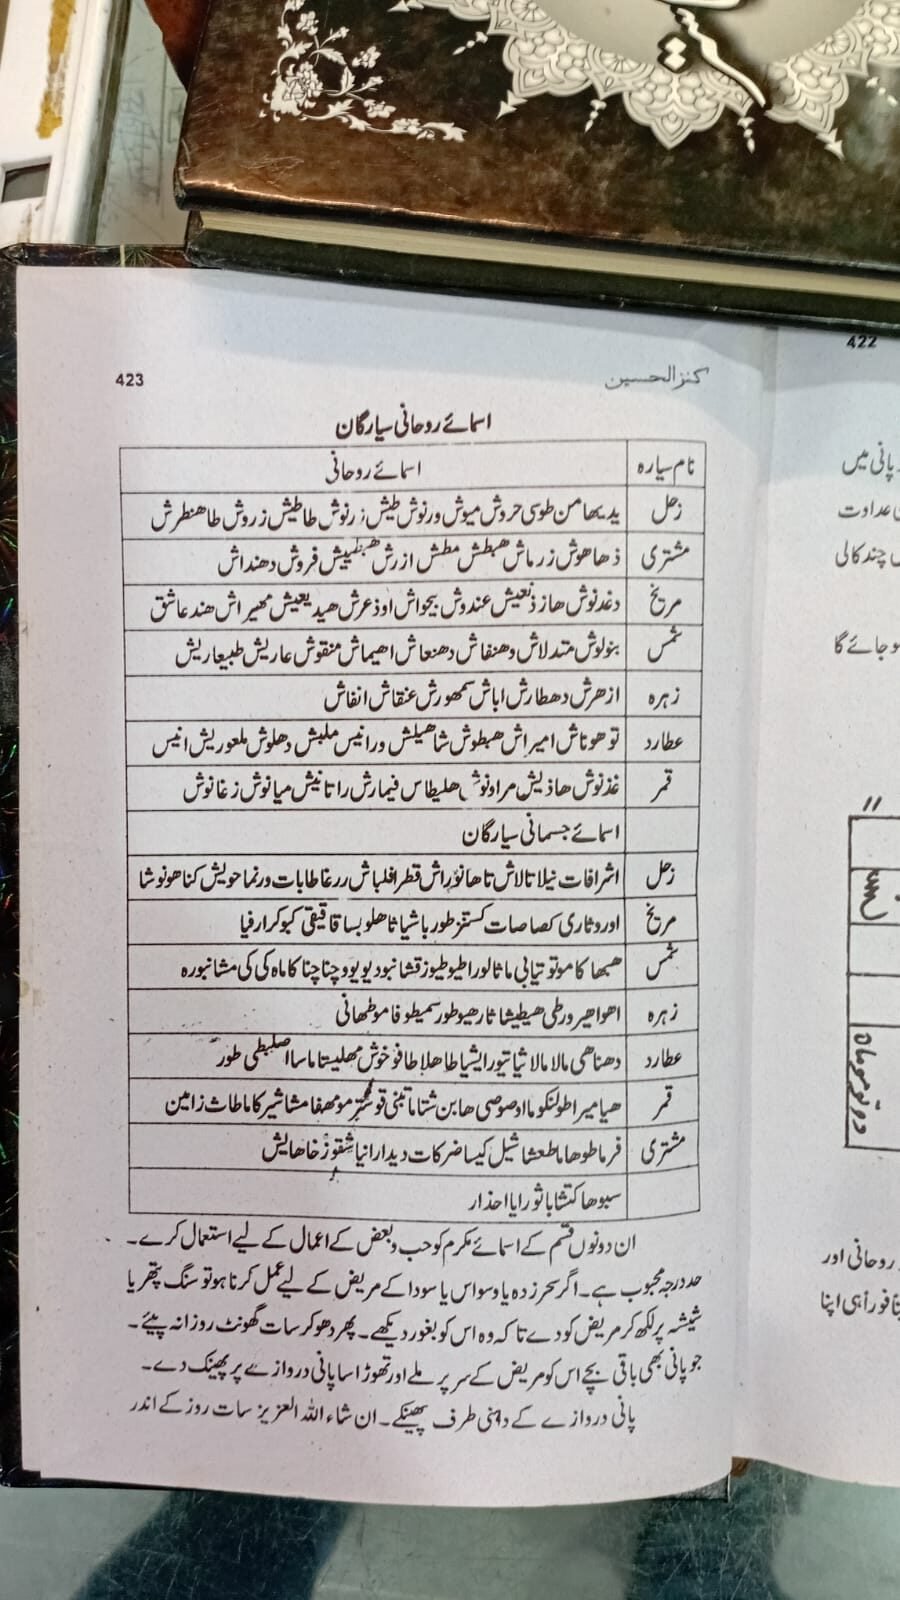 422
423
کنز الحسین
اسمائے روحانی سیارگان
نام سیارہ اسمائے روحانی
زحل یدیھا من طوسی حروش میوش ورنوش طیش زرنوش طاطیش زروش طاھنطرش
مشتری ذھاھوش زرماش ھبطش مطش ازرش ھبطییش فروش دھنداش
مریخ دغدنوش ھاز ذنعیش عندوش بجواش اوذعرش ھیدیعیش مھیراش ھند عاشق
شمس بنولوش متدلاش وھنفاش دھنعاش اھیماش منقوش عاریش طبیعاریش
زہرہ ازھرش دھطارش اباش سمھورش عنقاش انفاش
عطارد توھوناش امیراش ھبطوش شاھیلش ورانیس ملبش دھلوش ملعوریش انیس
قمر غذنوش ھاذیش مراونوش ھلیطاس فیمارش راتانیش میانوش زغانوش
اسمائے جسمانی سیارگان
زحل اشرافات نیلا تالاش تاھا نوراش قطرا فلباش ررغا طابات ورنما حویش کناھونوشا
مریخ اوروثاری کصاصات کستنز طور باشیاثا ھلوبسا قاقیقی کیوکرارفیا
شمس ھبھا کاموتو تیابی ماثالورا طیوطیوز قشانبود یویو وچنا چنا کاماہ کی کی مشانبورہ
زہرہ اھواھیرورطی ھیطیشا ثارھیوطور سمیطوفا موطھانی
عطارد دھناھی مالا مالا ثیاتیورایشیا طاھلاطا فوخوش مھلیستا ماسا اصلبطی طور
قمر ھیامیرا طولنکوما اوصوصی ھابن شتا ماتبنی قوشتر مومھفا مشاشیرکاماطاث زامین
مشتری فرماطوھاماطعشا شیل کیسا ضرکات دیدارانیا شقوز خاھایش
سبوھا کتشاباثورایا احذار
ان دونوں قسم کے اسمائے مکرم کو حب و بعض کے اعمال کے لیے استعمال کرے۔
حد درجہ محبوب ہے۔ اگر سحر زدہ یا وسواس یا سودا کے مریض کے لیے عمل کرنا ہو تو سنگ پتھر یا
شیشہ پر لکھ کر مریض کو دے تا کہ وہ اس کو بغور دیکھے۔ پھر دھو کر سات گھونٹ روزانہ پیئے۔
جو پانی بھی باقی بچے اس کو مریض کے سر پر ملے اور تھوڑا سا پانی دروازے پر پھینک دے۔
پانی دروازے کے دہنی طرف پھینکے۔ ان شاء اللہ العزیز سات روز کے اندر
پانی میں
عداوت
چند کالی
ہو جائے گا
روحانی اور
فوراً ہی اپنا